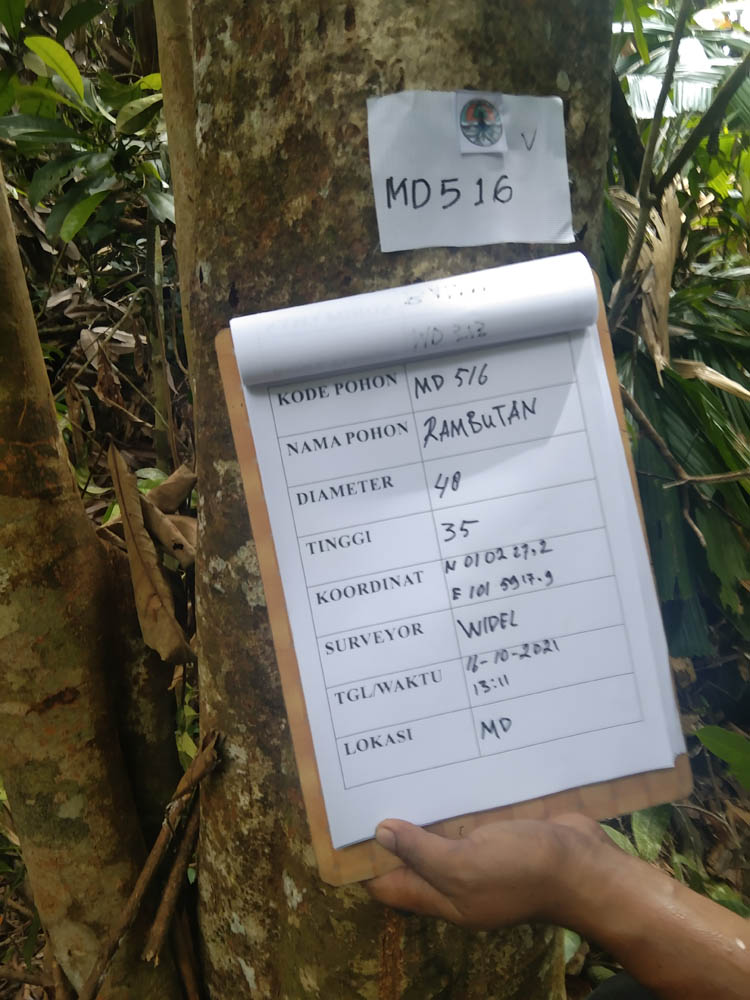 V
MD516
KODE POHON MD 516
NAMA POHON RAMBUTAN
DIAMETER 48
TINGGI 35
KOORDINAT N 01 02 27.2
E 101 5917.9
SURVEYOR WIDEL
TGL/WAKTU 16-10-2021
13:11
LOKASI MD